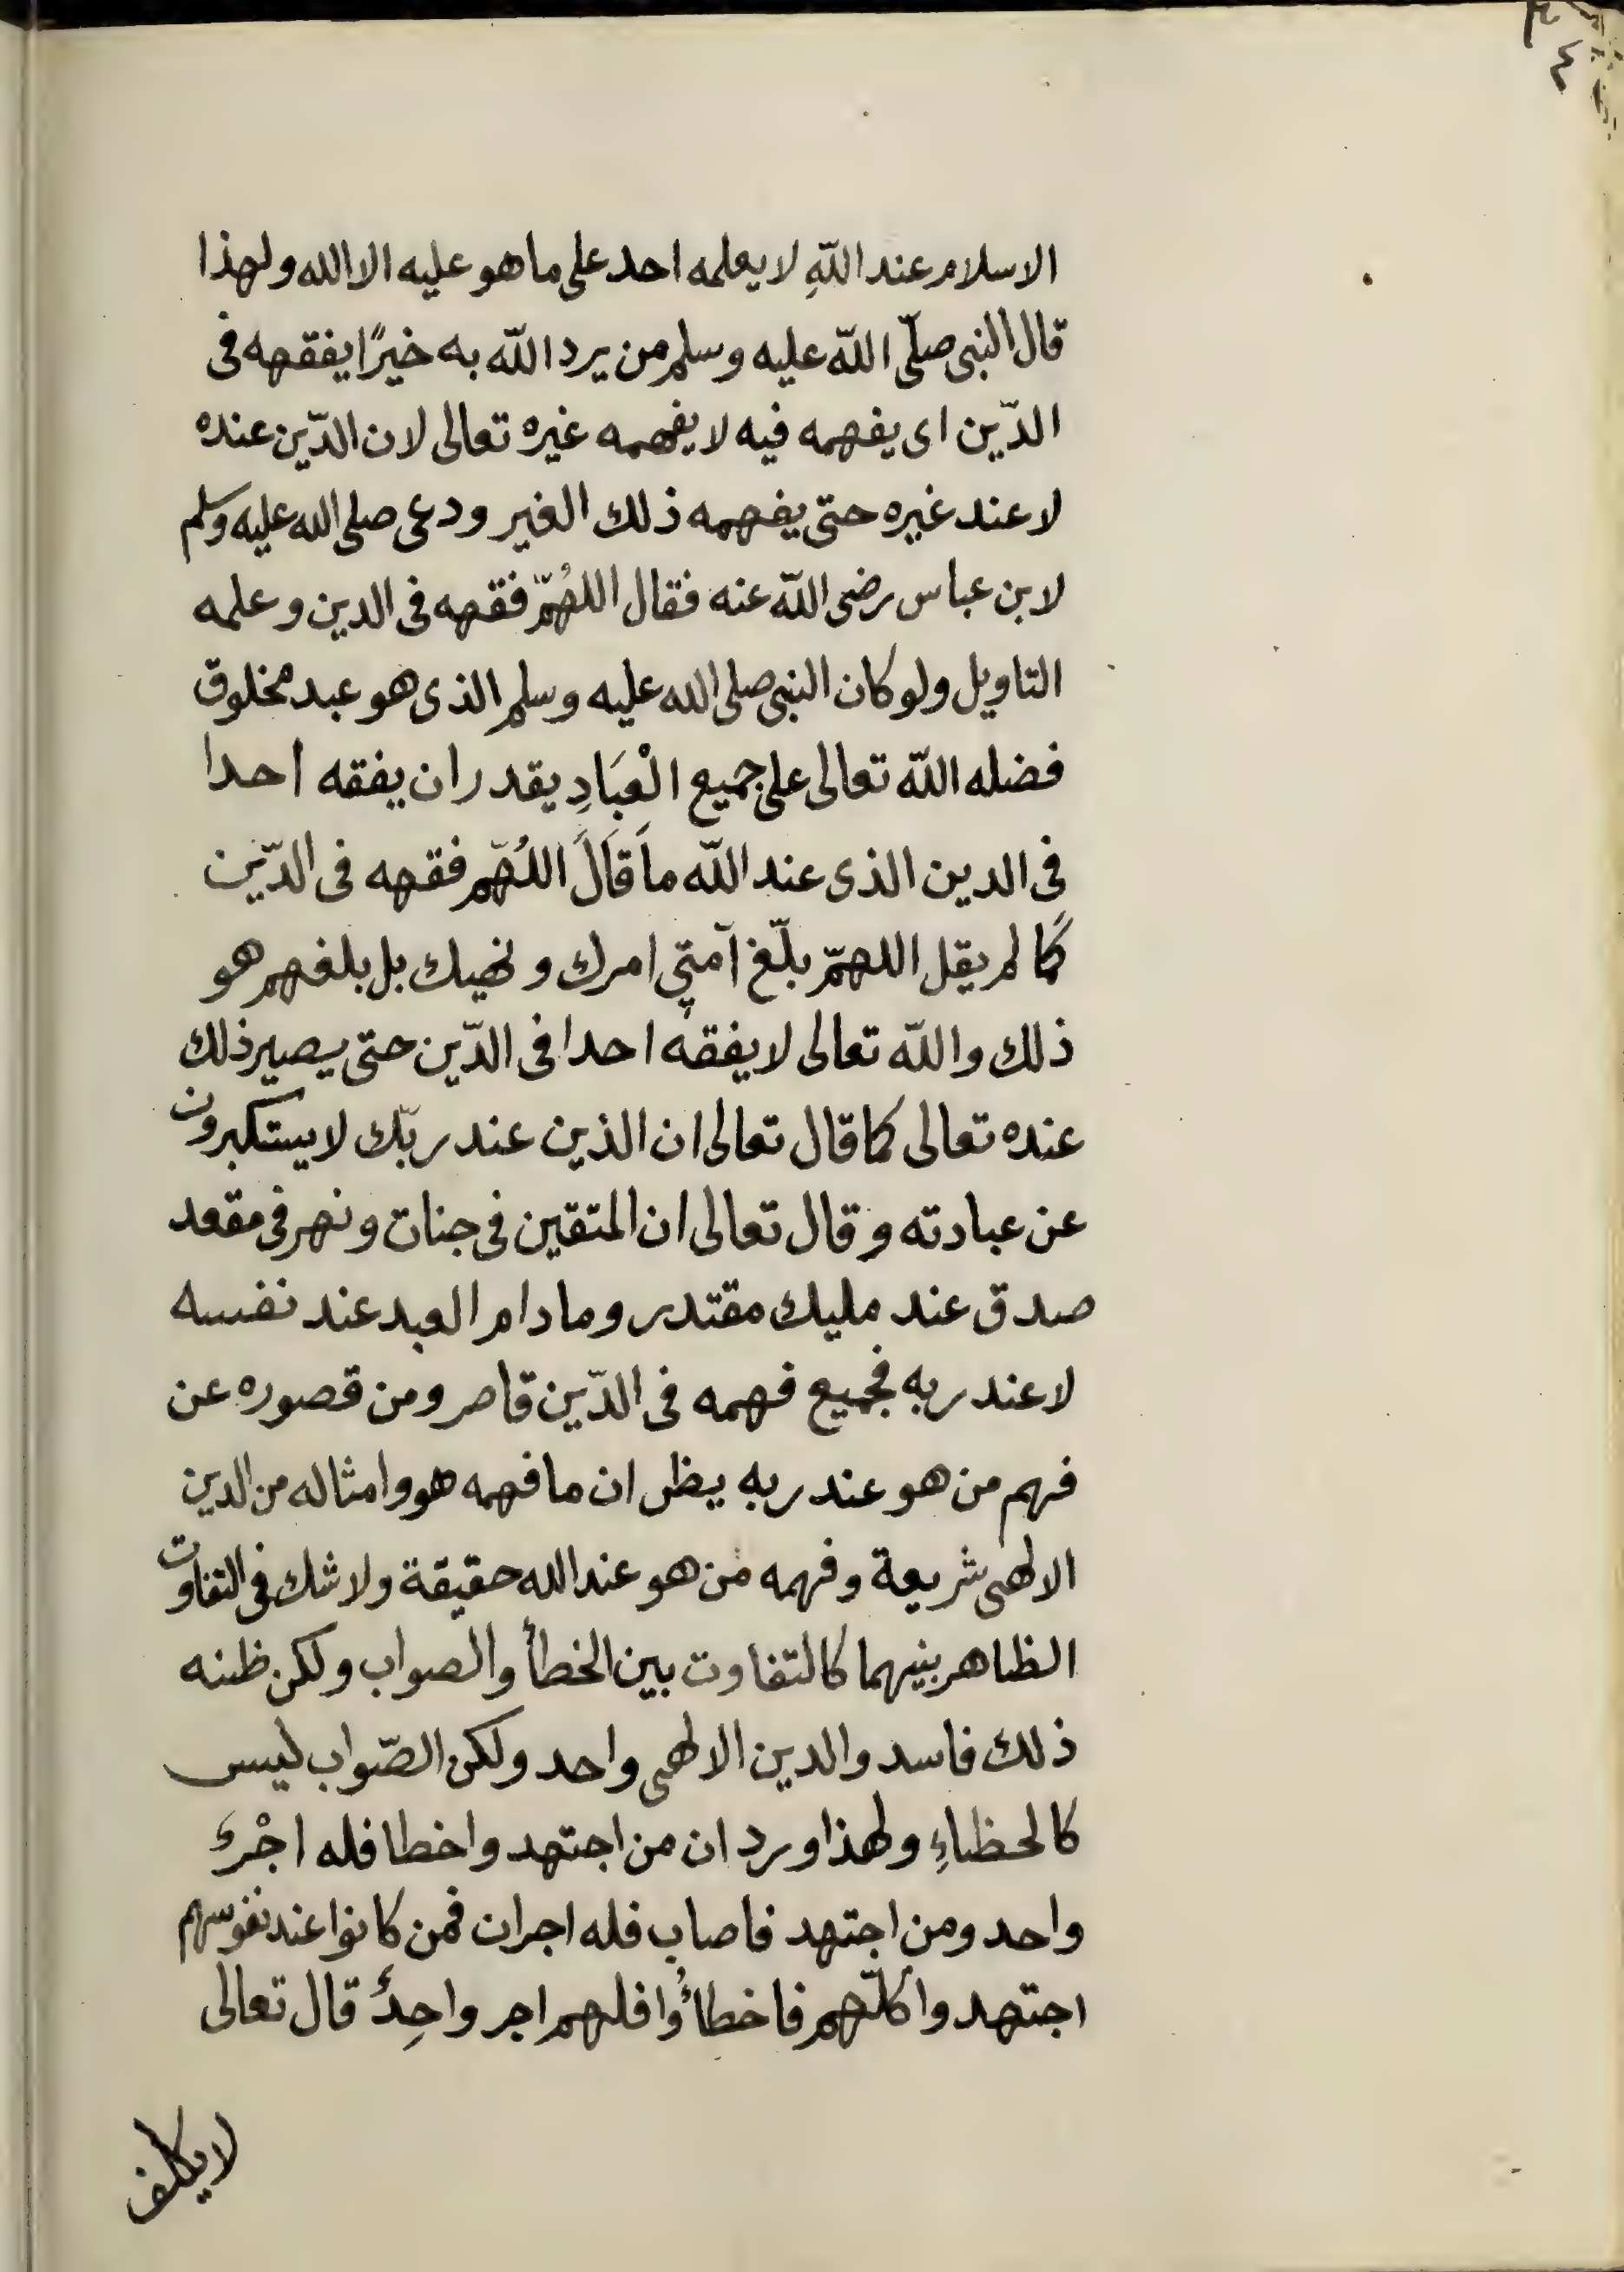 الاسلام عند اللّهِ لا يعلمه احد على ما هو عليه الا الله ولهذا
قال النبى صلّى اللّه عليه وسلم من يرد اللّه به خيرًا يفقهه فى
الدّين اى يفهمه فيه لا يفهمه غيره تعالى لان الدّين عنده
لا عند غيره حتى يفهمه ذلك الغير ودعى صلى الله عليه وسلم
لابن عباس رضى اللّه عنه فقال اللهُمّ فقهه فى الدين وعلمه
التاويل ولو كان النبى صلى الله عليه وسلم الذى هو عبد مخلوق
فضله اللّه تعالى على جميع الْعِبَادِ يقدر ان يفقه احدا
فى الدين الذى عند اللّه ماَ قَالَ اللهُمّ فقهه فى الدّين
كَما لم يقل اللهمّ بلّغ آمتى امرك ونهيك بل بلغهم هو
ذلك واللّه تعالى لا يفقه احدا فى الدّين حتى يصير ذلك
عنده تعالى كما قال تعالى ان الذين عند ربّك لا يستكبرون
عن عبادته وقال تعالى ان المتقين فى جنات ونهر فى مقعد
صدق عند مليك مقتدر وما دام العبد عند نفسه
لا عند ربه فجميع فهمه فى الدّين قاصر ومن قصوره عن
فهم من هو عند ربه يظن ان ما فهمه هو وامثاله من الدين
الالهى شريعة وفهمه من هو عند الله حقيقة ولا شك فى التفاوت
الظاهر بينهما كالتفاوت بين الخطأ والصواب ولكن ظنه
ذلك فاسد والدين الالهى واحد ولكن الصّواب ليس
كالخطاءِ ولهذا ورد ان من اجتهد واخطا فله اجْرٌ
واحد ومن اجتهد فاصاب فله اجران فمن كانوا عند نفوسهم
اجتهدوا كلّهم فاخطاُوا فلهم اجر واحِدٌ قال تعالى
لا يكلف